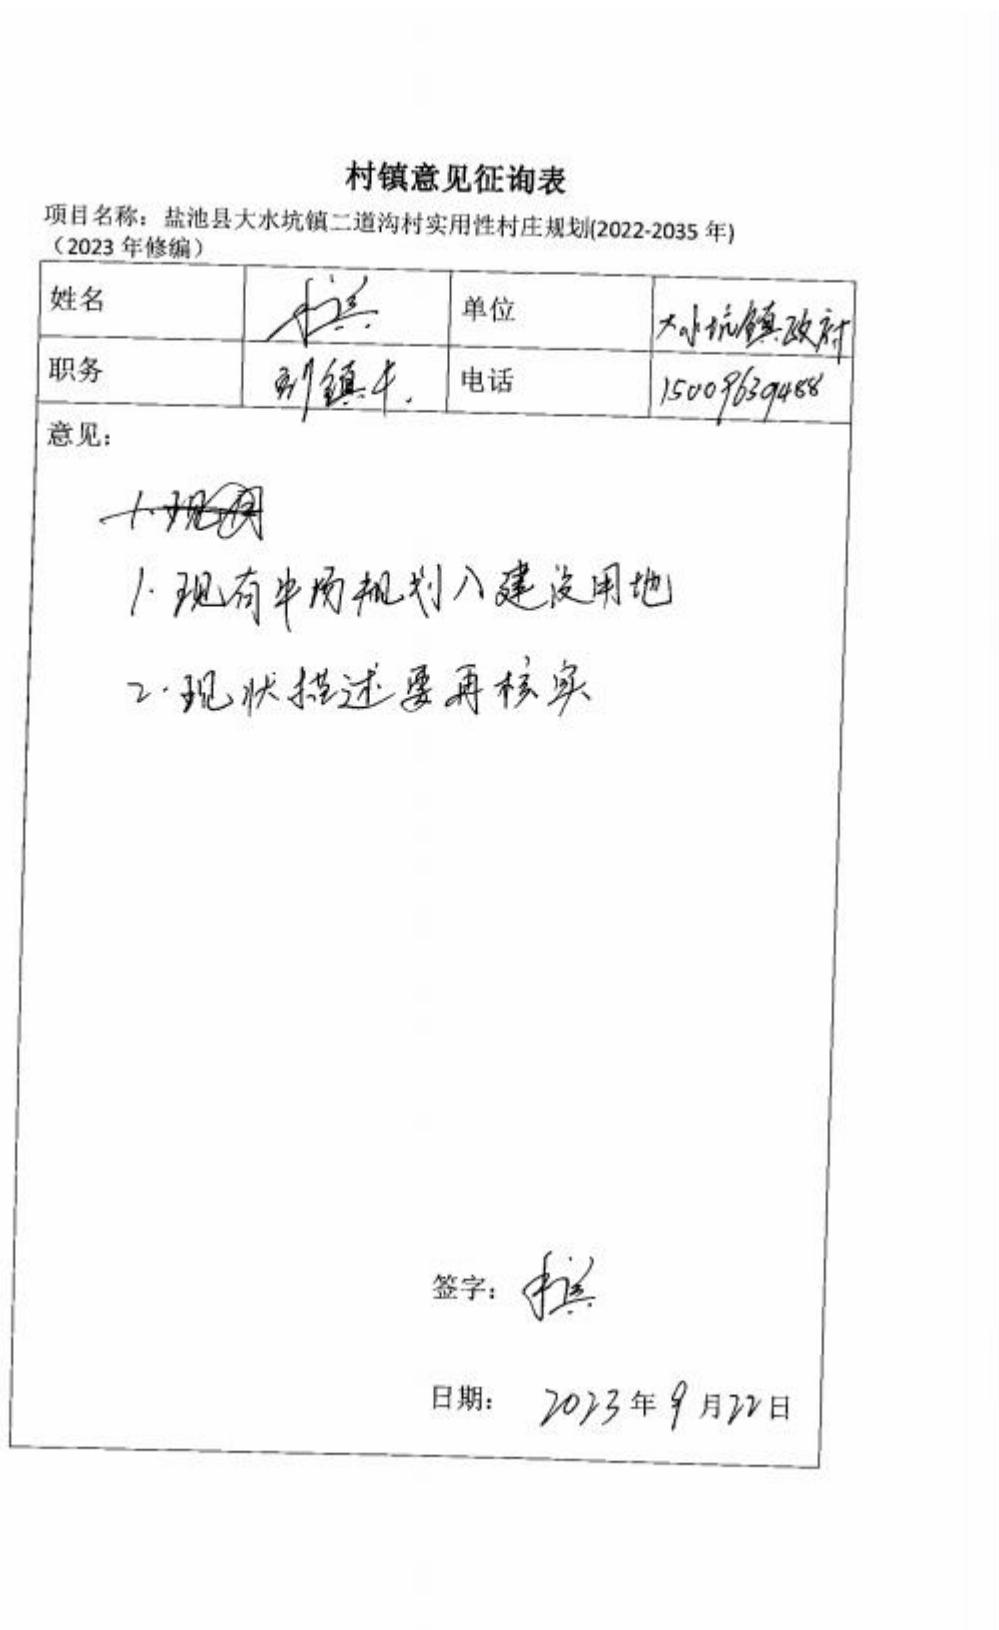 村镇意见征询表
项目名称：盐池县大水坑镇二道沟村实用性村庄规划(2022-2035 年)
（2023 年修编）
姓名 单位 大水坑镇政府
职务 副镇长. 电话 15009639488
意见：
1. 现有牛场规划入建设用地
2. 现状描述要再核实
签字：
日期： 2023 年 9 月 22 日